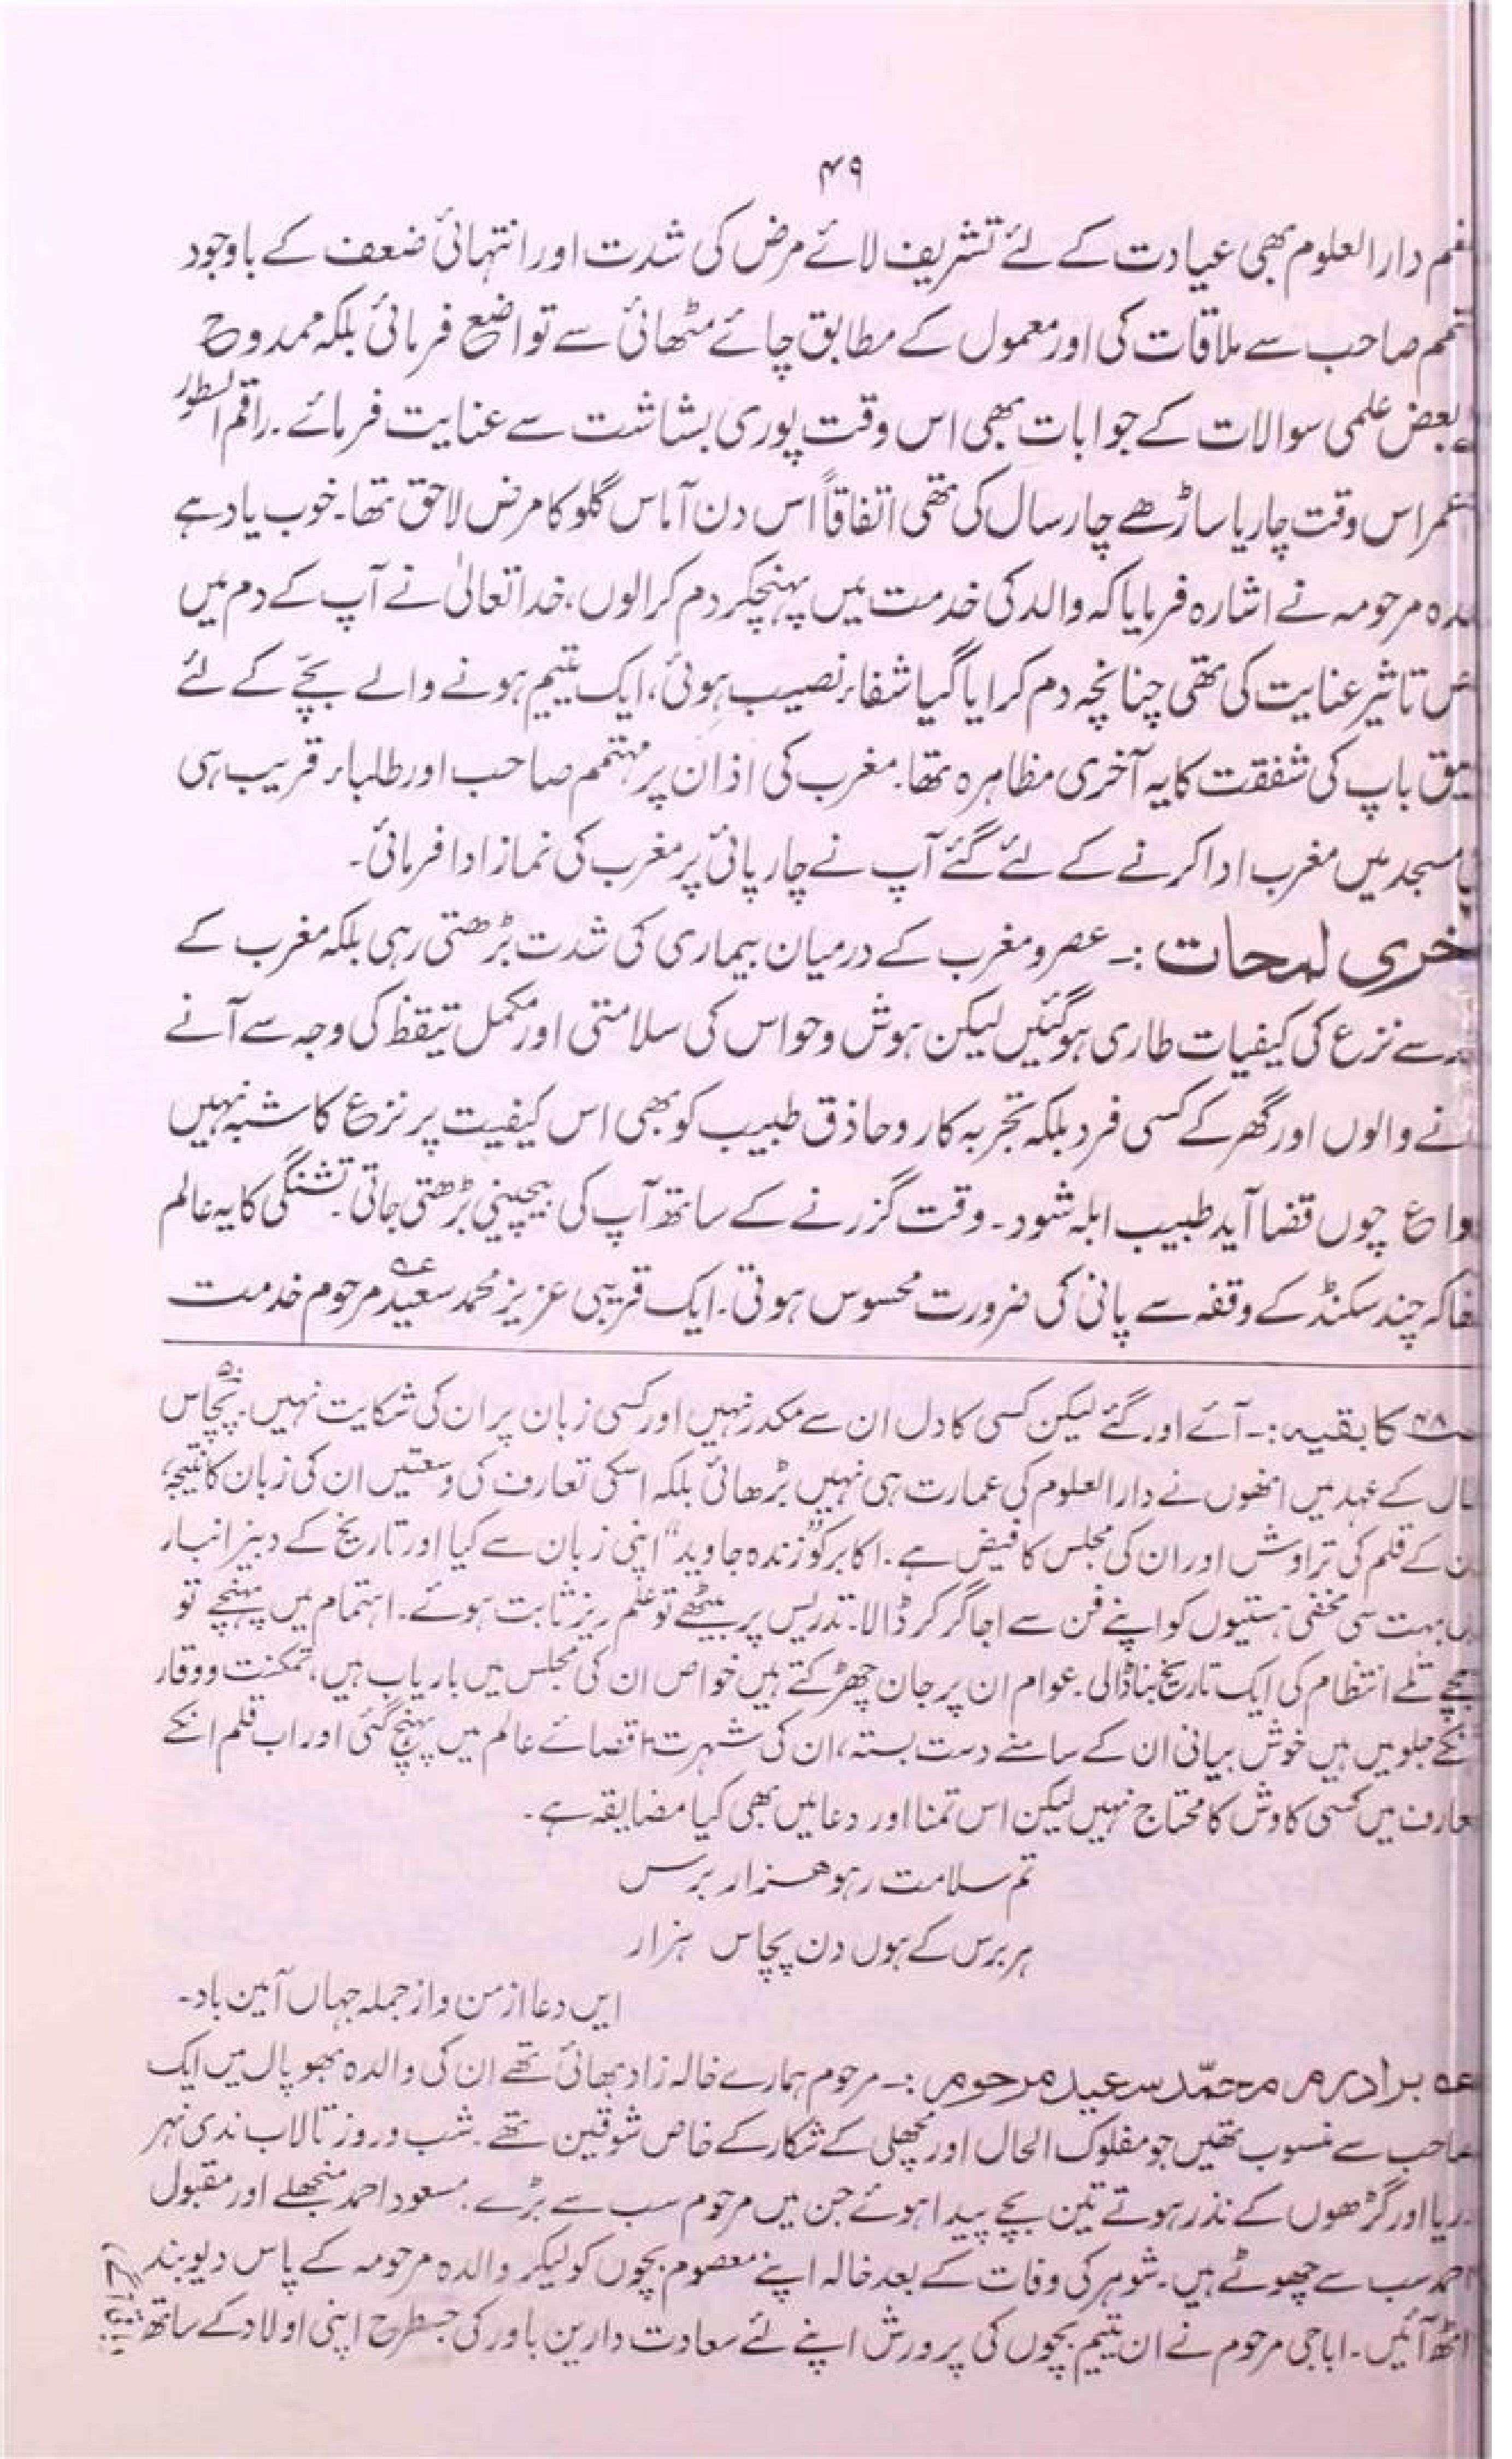 ۴۹
دارالعلوم بھی عیادت کے لئے تشریف لائے مرض کی شدت اور انتہائی ضعف کے باوجود
صاحب سے ملاقات کی اور معمول کے مطابق چائے مٹھائی سے تواضع فرمائی بلکہ ممدوح
بعض علمی سوالات کے جوابات بھی اس وقت پوری بشاشت سے عنایت فرمائے۔ راقم السطور
عمر اس وقت چار یا ساڑھے چار سال کی تھی اتفاقاً اس دن آماس گلو کا مرض لاحق تھا۔ خوب یاد ہے
مرحومہ نے اشارہ فرمایا کہ والد کی خدمت میں پہنچکر دم کرالوں، خدا تعالیٰ نے آپ کے دم میں
تاثیر عنایت کی تھی چنانچہ دم کرایا گیا شفاء نصیب ہوئی، ایک یتیم ہونے والے بچّے کے لئے
باپ کی شفقت کا یہ آخری مظاہرہ تھا۔ مغرب کی اذان پر مہتمم صاحب اور طلباء قریب ہی
مسجد میں مغرب ادا کرنے کے لئے گئے آپ نے چارپائی پر مغرب کی نماز ادا فرمائی۔
خری لمحات :۔ عصر و مغرب کے درمیان بیماری کی شدت بڑھتی رہی بلکہ مغرب کے
سے نزع کی کیفیات طاری ہوگئیں لیکن ہوش و حواس کی سلامتی اور مکمل تیقظ کی وجہ سے آنے
نے والوں اور گھر کے کسی فرد بلکہ تجربہ کار و حاذق طبیب کو بھی اس کیفیت پر نزع کا شبہ نہیں
وا ع چوں قضا آید طبیب ابلہ شود۔ وقت گزرنے کے ساتھ آپ کی بیچینی بڑھتی جاتی۔ تشنگی کا یہ عالم
کہ چند سکنڈ کے وقفہ سے پانی کی ضرورت محسوس ہوتی۔ ایک قریبی عزیز محمد سعید عہ مرحوم خدمت
۴۸ کا بقیہ :۔ آئے اور گئے لیکن کسی کا دل ان سے مکدر نہیں اور کسی زبان پر ان کی شکایت نہیں۔ پچاس ۵۰
کے عہد میں انھوں نے دارالعلوم کی عمارت ہی نہیں بڑھائی بلکہ اسکی تعارف کی وسعتیں ان کی زبان کا نتیجہ
کے قلم کی تراوش اور ان کی مجلس کا فیض ہے۔ اکابر کو ”زندہ جاوید“ اپنی زبان سے کیا اور تاریخ کے دبیز انبار
بہت سی مخفی ہستیوں کو اپنے فن سے اجاگر کر ڈالا۔ تدریس پر بیٹھے تو علم ریز ثابت ہوئے۔ اہتمام میں پہنچے تو
تلے انتظام کی ایک تاریخ بنا ڈالی۔ عوام ان پر جان چھڑکتے ہیں خواص ان کی مجلس میں باریاب ہیں، تمکنت و وقار
جلو میں ہیں خوش بیانی ان کے سامنے دست بستہ، ان کی شہرت اقصائے عالم میں پہنچ گئی اور اب قلم انکے
میں کسی کاوش کا محتاج نہیں لیکن اس تمنا اور دعا میں بھی کیا مضایقہ ہے۔
تم سلامت رہو ھزار برس
ہر برس کے ہوں دن پچاس ہزار
ایں دعا از من و از جملہ جہاں آمین باد۔
عہ برادرم محمّد سعید مرحوم :۔ مرحوم ہمارے خالہ زاد بھائی تھے ان کی والدہ بھوپال میں ایک
صاحب سے منسوب تھیں جو مفلوک الحال اور مچھلی کے شکار کے خاص شوقین تھے۔ شب و روز تالاب ندی نہر
اور گڑھوں کے نذر ہوتے تین بچے پیدا ہوئے جن میں مرحوم سب سے بڑے۔ مسعود احمد منجھلے اور مقبول
احمد سب سے چھوٹے ہیں۔ شوہر کی وفات کے بعد خالہ اپنے معصوم بچوں کو لیکر والدہ مرحومہ کے پاس دیوبند
اٹھ آئیں۔ اباجی مرحوم نے ان یتیم بچوں کی پرورش اپنے لئے سعادت دارین باور کی جسطرح اپنی اولاد کے ساتھ